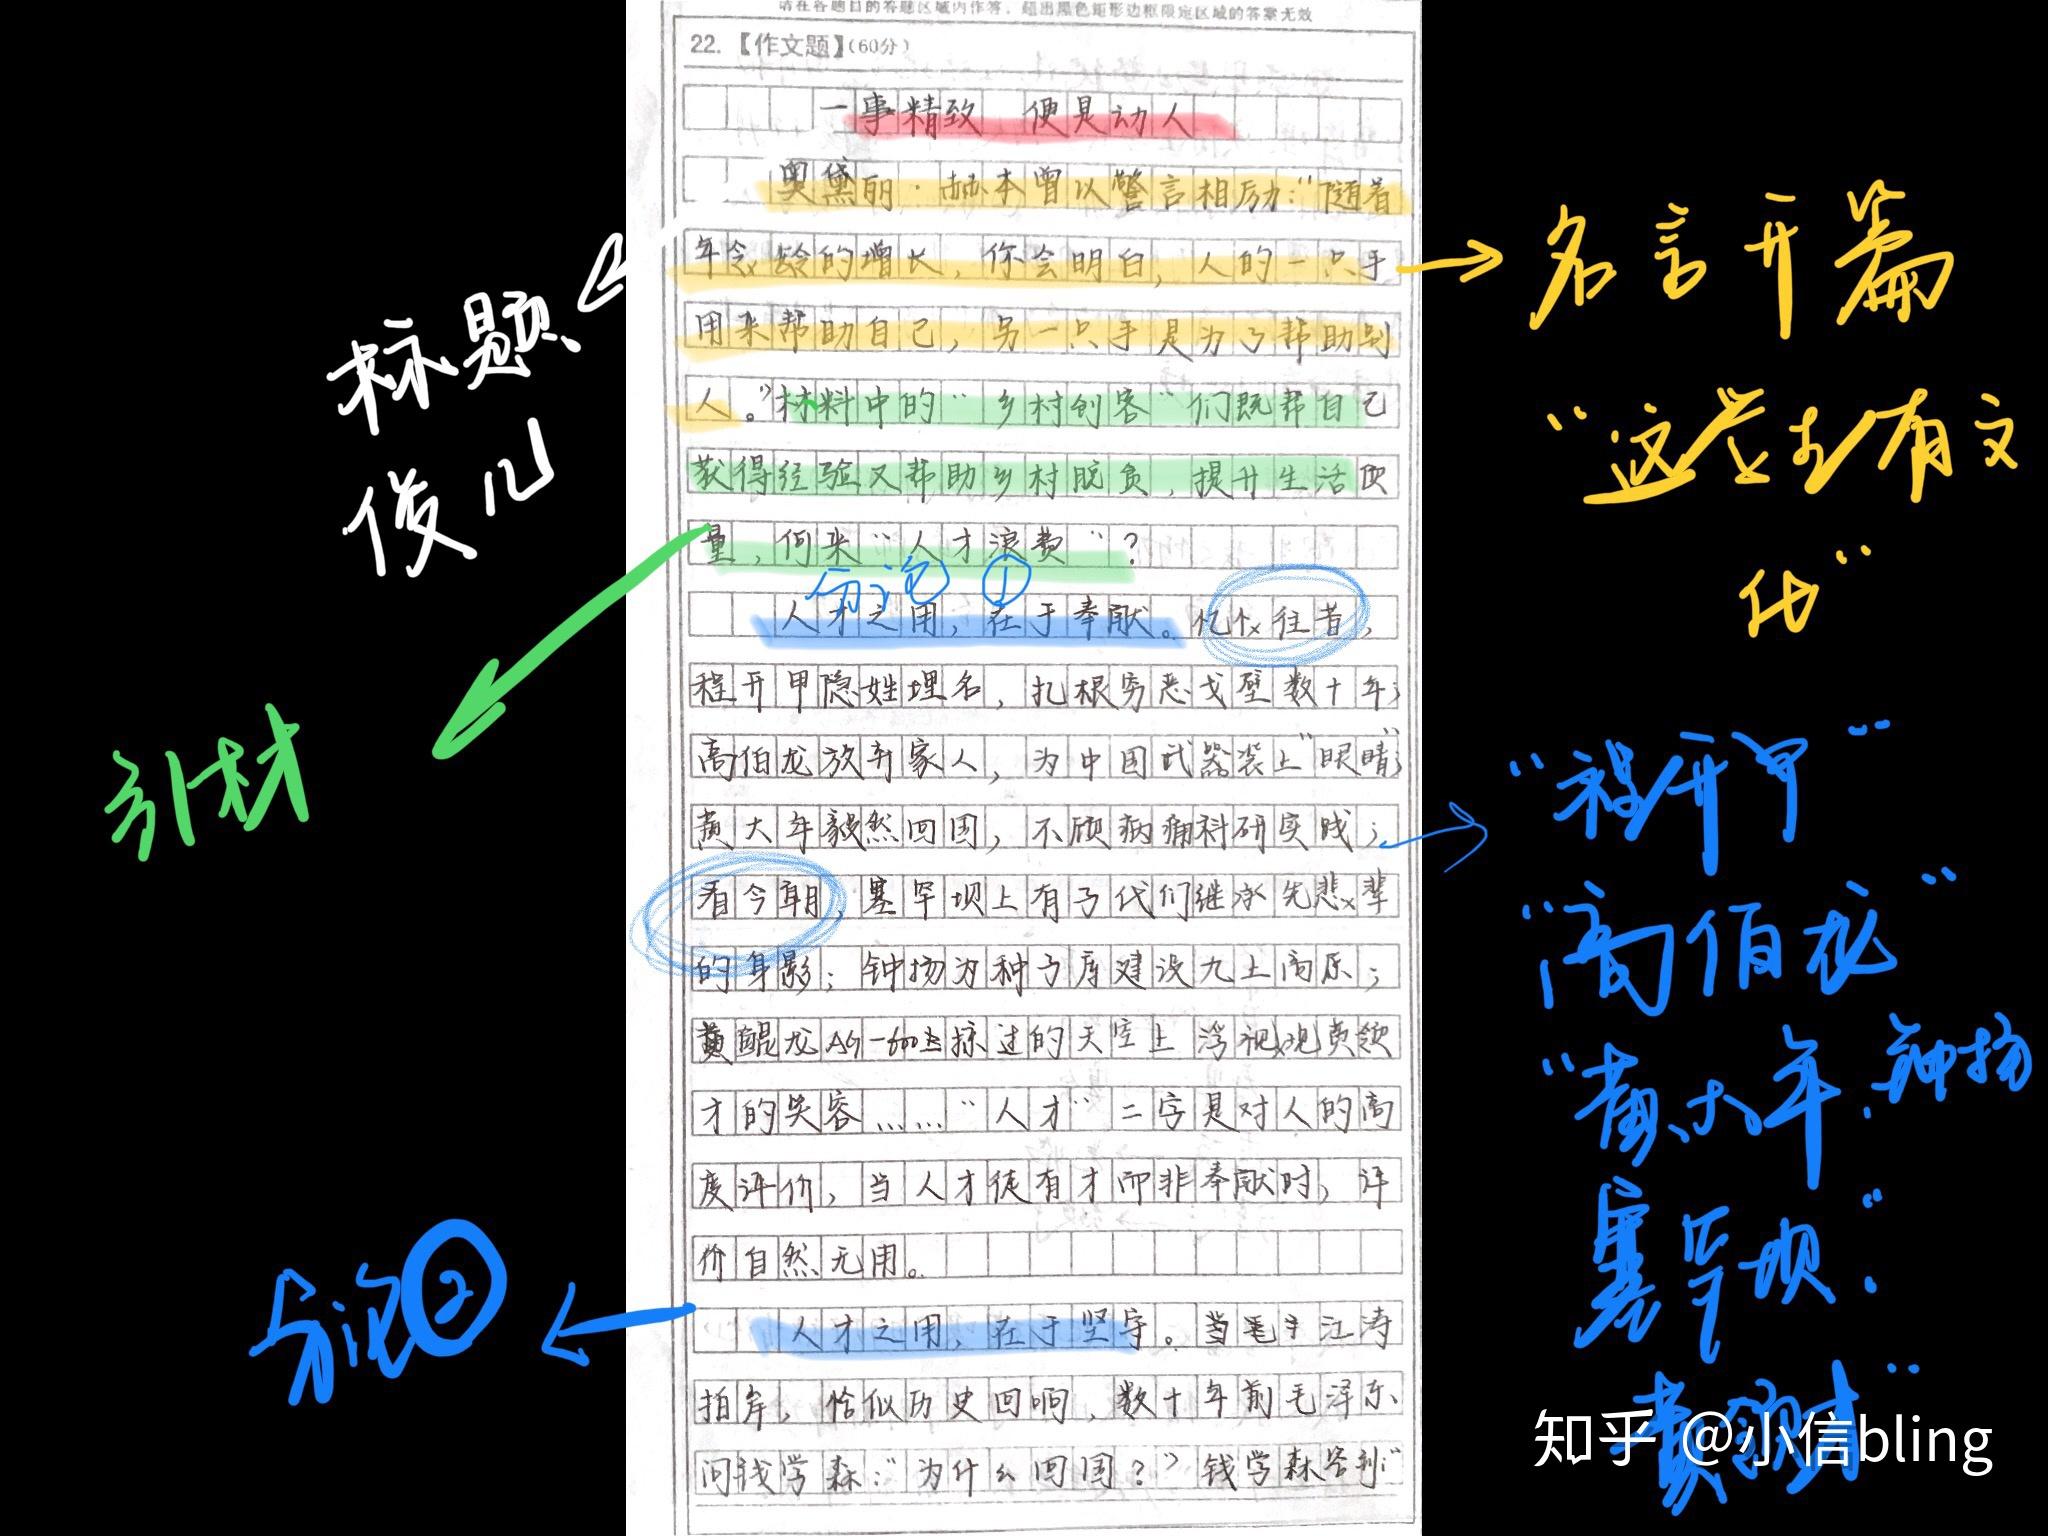 请在各题目的答题区域内作答，超出黑色矩形边框限定区域的答案无效
22.【作文题】(60分)
一事精致 便是动人
奥黛丽·赫本曾以警言相励：“随着
年龄的增长，你会明白，人的一只手
用来帮助自己，另一只手是为了帮助别
人。”材料中的“乡村创客”们既帮自己
获得经验又帮助乡村脱贫，提升生活质
量，何来“人才浪费”？
分论①
人才之用，在于奉献。忆往昔，
程开甲隐姓埋名，扎根穷恶戈壁数十年；
高伯龙放弃家人，为中国武器装上“眼睛”；
黄大年毅然回国，不顾病痛科研实践；
看今朝，塞罕坝上有子代们继承先辈
的身影；钟扬为种子库建设九上高原；
鲲龙AG-600掠过的天空上浮现黄领
才的笑容……“人才”二字是对人的高
度评价，当人才徒有才而非奉献时，评
价自然无用。
人才之用，在于坚守。当毛主江涛
拍岸，恰似历史回响，数十年前毛泽东
问钱学森：“为什么回国？”钱学森答到：“
标题
俊儿
引材
分论②
名言开篇
“这学生有文
化”
“程开甲”
“高伯龙”
“黄大年、钟扬
塞罕坝”
黄领才”
知乎 @小信bling